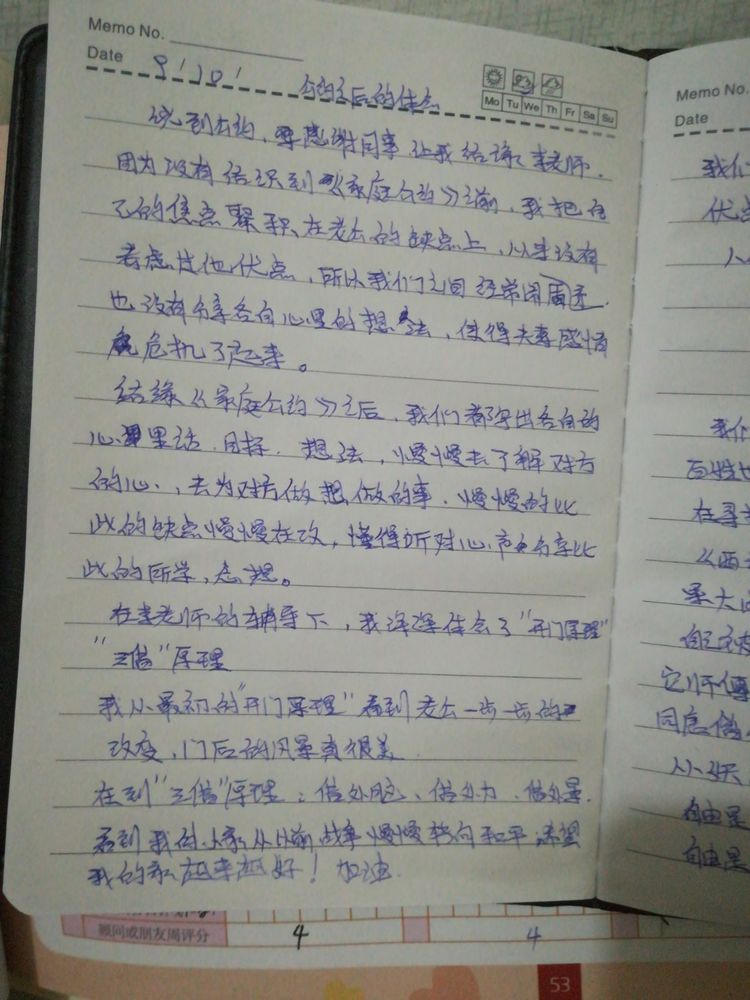 Memo No.
Date 9 / 10 /
公约之后的体会
Mo Tu We Th Fr Sa Su
说到公约，要感谢同事让我结缘李老师.
因为没有结识到《家庭公约》之前，我把自
己的焦点聚积在老公的缺点上，从来没有
考虑过他优点，所以我们之间经常闹
也没有分享各自心里的想法，使得夫妻感情
危机了起来。
结缘《家庭公约》之后，我们都写出各自的
心里话.目标.想法，慢慢去了解对方
的心，去为对方做想做的事.慢慢的比
此的缺点慢慢在改，懂得听对心声的分享比
此的所学，感想。
在李老师的辅导下，我深深体会了"开门原理"
"三借"原理
我从最初的"开门原理"看到老公一步一步的
改变，门后的风景真很美
在到"三借"原理：借外脑、借外力.借外景.
看到我的小家从以前战争慢慢转向和平.希望
我的家越来越好！加油.
Memo No.
Date
我们
伏
八
我们
百姓
在寻
《西
果大
自己
它师傅
同意
人小
自由是
自由是
顾问或朋友周评分 4 4
53